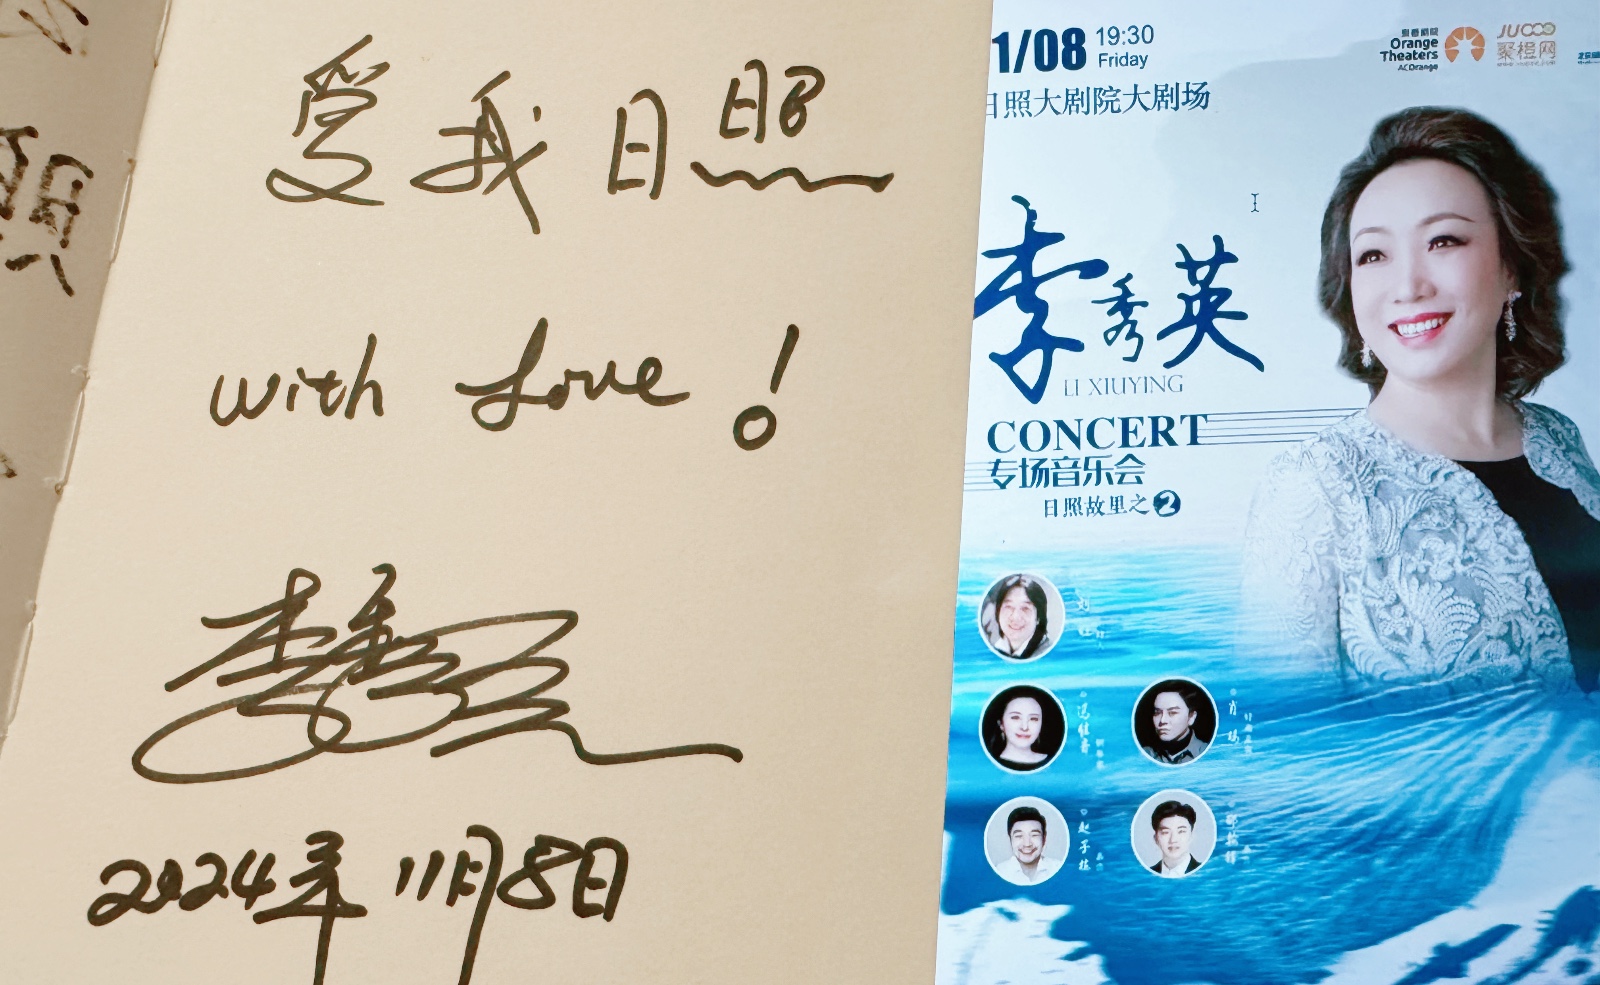 爱我日照
with Love!
李秀英
2024年11月8日
1/08
19:30
Friday
Orange
Theaters
ACOrange
JUOOO
聚橙网
日照大剧院大剧场
李秀英
LI XIUYING
CONCERT
专场音乐会
日照故里之2